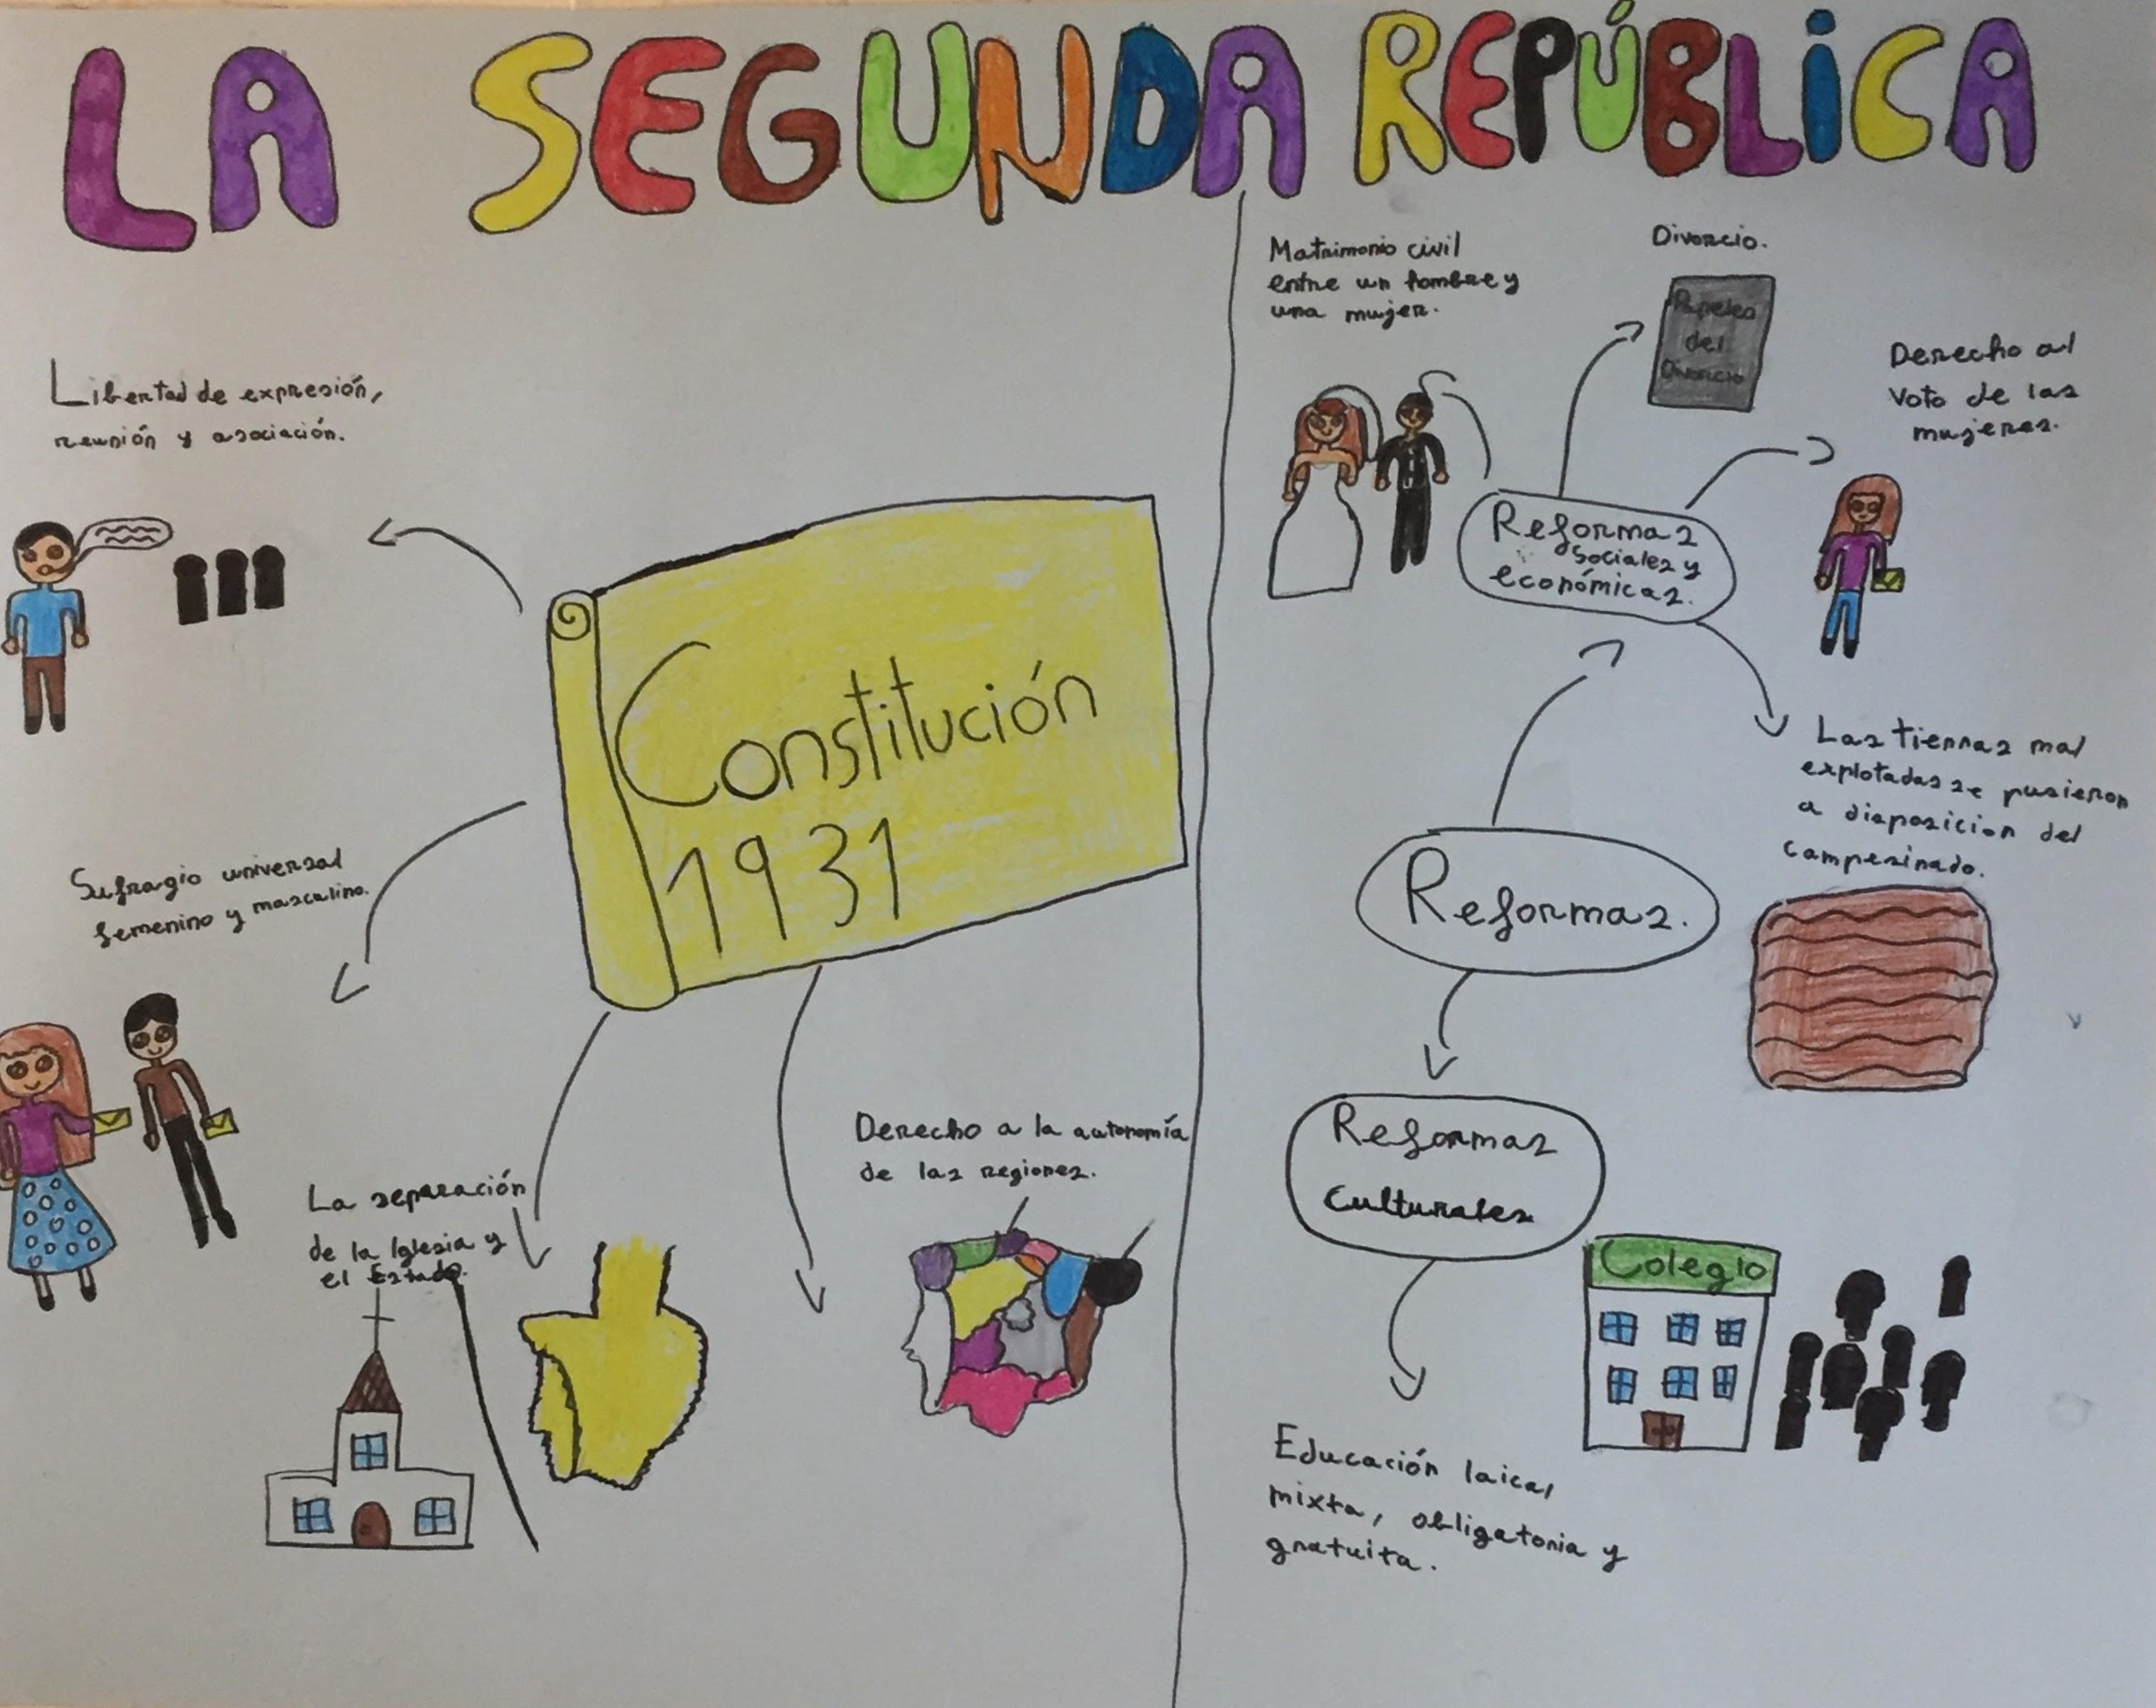 LA SEGUNDA REPÚBLICA
Libertad de expresión,
reunión y asociación.
Constitución
1931
Sufragio universal
femenino y masculino.
La separación
de la Iglesia y
el Estado.
Derecho a la autonomía
de las regiones.
Matrimonio civil
entre un hombre y
una mujer.
Divorcio.
Papeles
del
Divorcio
Derecho al
voto de las
mujeres.
Reformas
sociales y
económicas.
Las tierras mal
explotadas se pusieron
a disposicion del
campesinado.
Reformas.
Reformas
Culturales
Colegio
Educación laical
mixta, obligatoria y
gratuita.